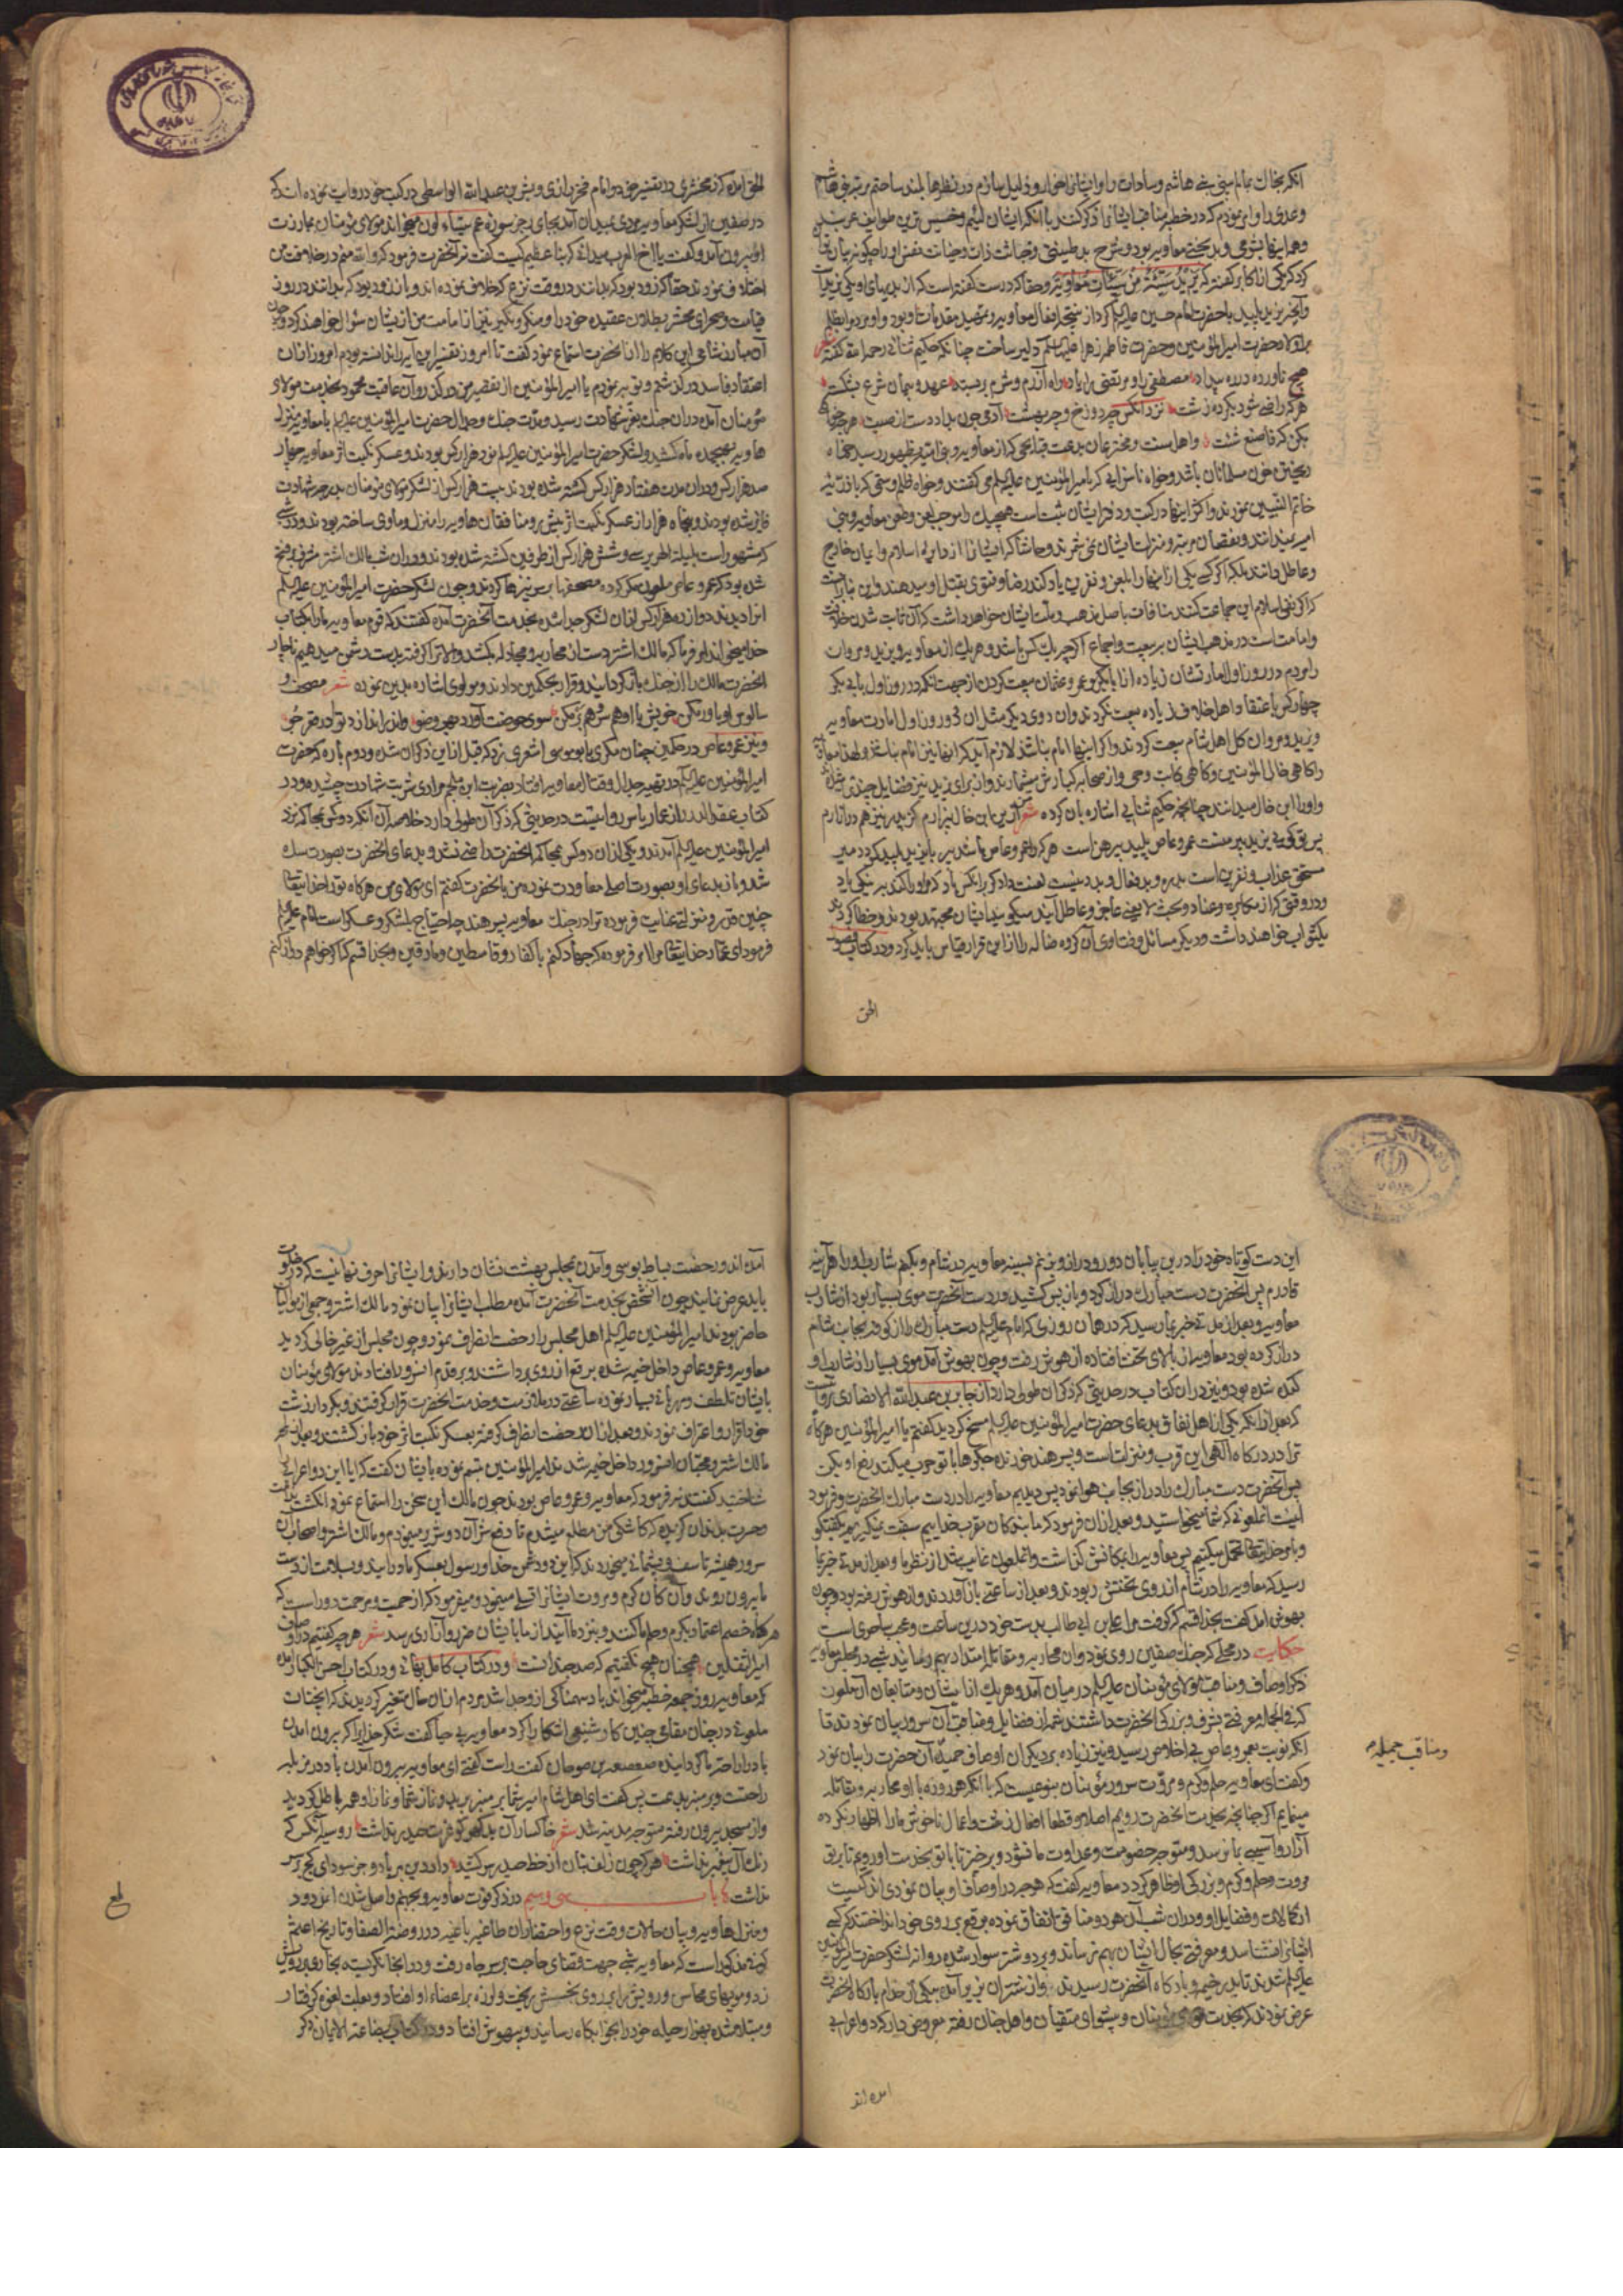 آنکه بخاک عالم
وعدی را و امر نمودم که در خطبه مناقب ایشانرا ذکر کنند با آنکه ایشان لئیم و خسیس ترین طوایف عرب
و همه اینها بشومی و بدبختی معاویه بود و شرح بد طینتی و خباثت ذات و خیانت نفس او را چگونه بیان
کرد که یکی از اکابر گفته که یزید سیئة من سیئات معاویة و حقا که درست گفته است که از بدیهای او یکی یزید
و آنچه یزید پلید با حضرت امام حسین علیه السلام کرد از نتیجه افعال معاویه و تمهید مقدمات او بود و او مردم را بظلم
بر اولاد حضرت امیرالمؤمنین و حضرت فاطمه زهرا علیها السلام دلیر ساخت چنانکه حکیم ثنائی رحمه الله گفته شعر
هیچ ناورده در ره بیداد مصطفی را و مرتضی را یاد راه آزرم و شرم بربسته عهد و پیمان شرع بشکسته
هر که راضی شود بکرده زشت نزد آنکس چه دوزخ و چه بهشت
خاتم النبیین نمودند و اکثر اینها در کتب و دفتر ایشان ثبت است هیچیک را موجب لعن و طعن معاویه و بنی
امیه نمیدانند و نقصان مرتبه و منزلت ایشان نمی شمرند و حاشا که ایشانرا از دایره اسلام و ایمان خارج
و عاطل دانند بلکه اگر کسی یکی از اینها را بلعن و نفرین یاد کند رضا و فتوی بقتل او میدهند
و امامت است در مذهب ایشان بر بیعت و اجماع اگر چه یک کس باشد و هر یک از معاویه و یزید و مروان
را مردم در روز اول امارتشان زیاده از ابابکر و عمر و عثمان بیعت کردن از جهت آنکه در روز اول بابی بکر
چهار کس باعتقاد اهل خلاف زیاده بیعت نکردند و آن دوی دیگر مثل آن و در روز اول امارت معاویه
و یزید و مروان کل اهل شام بیعت کردند و اگر اینها امام نباشند لازم آید که اینها نیز امام نباشند
را گاهی خال المؤمنین و گاهی کاتب وحی و از صحابه کبارش میشمارند و از برای یزید نیز فضایل چندی
و او را ابن خال میدانند چنانچه حکیم ثنایی اشاره بآن کرده شعر
مستحق عذاب و نفرین است بد ره و بد فعال و بد دینست لعنت دادگر برانکس باد که مر او را کند به نیکی یاد
و در وقتی که از مکابره و عناد و بحث لا یعنی عاجز و عاطل آیند میگویند ایشان مجتهد بودند و خطا کردند
یک ثواب خواهند داشت و دیگر مسائل و فتاوی آن گروه ضاله را ازین قرار قیاس باید کرد و در کتاب
الحق
الحق آمده که زمخشری در تفسیر خود و امام فخر رازی و بشر بن عبدالله الواسطی در کتب خود روایت نموده اند که
در صفین از لشکر معاویه مردی بمیدان آمد بجای رجز سوره عم یتساءلون میخواند مولای مؤمنان بمبارزت
او بیرون آمد و گفت یا اخ العرب میدانی که نباء عظیم کیست گفت نه آنحضرت فرمود که والله منم در خلافت من
اختلاف نمودند حقا که زود بود که بدانند در وقت نزع که خلاف نموده اند و باز زود بود که بدانند در روز
قیامت و صحرای محشر بطلان عقیده خود را و منکر و نکیر نیز از امامت من از ایشان سؤال خواهند کرد و چون
آن مبارز شامی این کلام را از آنحضرت استماع نمود گفت تا امروز تفسیر این آیه را ندانسته بودم امروز از آن
اعتقاد فاسد در گذشتم و توبه نمودم یا امیرالمؤمنین از تقصیر من در گذر و آن عاقبت محمود بخدمت مولای
مؤمنان آمده در آن جنگ بعز شهادت رسید و مدت جنگ و جدال حضرت امیرالمؤمنین علیه السلام با معاویه منزله
هاویه بهیجده ماه کشید و لشکر حضرت امیرالمؤمنین علیه السلام نود هزار کس بودند و عسکر نکبت اثر معاویه چهار
صد هزار کس و در آن مدت هفتاد هزار کس کشته شده بودند بیست هزار کس از لشکر مولای مؤمنان بدرجه شهادت
فایز شده بودند و پنجاه هزار از عسکر نکبت اثر بیش رو منافقان هاویه را منزل و ماوی ساخته بودند و در شبی
که مشهور است بلیلة الهریر سی و شش هزار کس از طرفین کشته شده بودند و در آن شب مالک اشتر مشرف بر فتح
شده بود که عمرو عاص ملعون مکر کرده مصحفها بر سر نیزها کردند و چون لشکر حضرت امیرالمؤمنین علیه السلام
آنرا دیدند دوازده هزار کس از آن لشکر جدا شده بخدمت آنحضرت آمده گفتند که قوم معاویه ما را بکتاب
خدا میخوانند امر فرما که مالک اشتر دست از محاربه و مجادله بکشد و الا ترا گرفته بدست دشمن میدهیم ناچار
آنحضرت مالک را از جنگ باز گردانید و قرار بحکمین دادند و مولوی اشاره بدین نموده شعر مصحف و
سالوس او باور مکن خویش با او همسر و همبر مکن سوی حوضت آورد بهر وضو واندر اندازد ترا در قعر جو
و نیز عمرو عاص در حکمین چنان مکری با ابو موسی اشعری زد که قبل از این ذکر آن شده و دوم باره که حضرت
امیرالمؤمنین علیه السلام در تهیه جدال و قتال معاویه افتاد بضربت ابن ملجم مرادی شربت شهادت چشیده و در
کتاب عقد الدرر از عمار یاسر روایتست در حدیثی که ذکر آن طولی دارد خلاصه آن آنکه دو کس بمحاکمه نزد
امیرالمؤمنین علیه السلام آمدند و یکی از آن دو کس بمحاکمه آنحضرت راضی نشد و بدعای آنحضرت بصورت سگ
شد و باز بدعای او بصورت اصلی معاودت نمود من بآنحضرت گفتم ای مولای من هرگاه ترا خدایتعالی
چنین قدر و منزلتی عنایت فرموده ترا در جنگ معاویه پسر هند چه احتیاج بلشکر و عسکر است امام علیه السلام
فرمود ای عمار خدایتعالی مرا امر فرموده که جهاد کنم با کفار و قاسطین و مارقین و بخدا قسم که اگر خواهم دراز کنم
این دست کوتاه خود را درین بیابان دور و دراز و بزنم بسینه معاویه در شام و بکنم شارب او را هر آینه
قادرم پس آنحضرت دست مبارک دراز کرد و باز پس کشید و در دست آنحضرت موی بسیار بود از شارب
معاویه و بعد از مدتی خبر بما رسید که در همان روزی که امام علیه السلام دست مبارک را از کوفه بجانب شام
دراز کرده بود معاویه از بالای تخت افتاده از هوش رفت و چون بهوش آمد موی بسیار از شارب او
کنده شده بود و نیز در آن کتاب در حدیثی که ذکر آن طولی دارد از جابر بن عبدالله الانصاری روایتست
که بعد از آنکه یکی از اهل نفاق بدعای حضرت امیرالمؤمنین علیه السلام مسخ گردید گفتم یا امیرالمؤمنین هرگاه
ترا در درگاه الهی این قرب و منزلتست و پسر هند خورنده جگرها با تو حرب میکند دفع او بکن
پس آنحضرت دست مبارک را دراز بجانب هوا نمود پس دیدیم معاویه را در دست مبارک آنحضرت و فرمود
اینست آنملعونی که شما میخواستید و بعد از آن فرمود که ما بندگان مقرب خداییم سبقت نمیگیریم بگفتگو
و بامر خدایتعالی عمل میکنیم پس معاویه را بمکانش گذاشت و آنملعون غایب شد از نظر ما و بعد از مدتی خبر بما
رسید که معاویه را در شام از روی تختش ربودند و بعد از ساعتی باز آوردند و از هوش رفته بود و چون
بهوش آمد گفت بخدا قسم که گرفت مرا علی بن ابی طالب بدست خود درین ساعت و عجب ساحری است
حکایت در محلی که جنگ صفین روی نمود و آن محاربه و مقاتله امتداد بهم رسانید شبی در مجلس معاویه
ذکر اوصاف و مناقب مولای مؤمنان علیه السلام در میان آمد و هر یک از ایشان و متابعان آن ملعون
که فی الجمله معرفتی بشرف و بزرگی آنحضرت داشتند شمه از فضایل و مناقب آن سرور بیان نمودند تا
آنکه نوبت بعمرو عاص بی اخلاص رسید و نیز زیاده بر دیگران اوصاف حمیده آن حضرت را بیان نمود
و مناقب جمیله
و گفت ای معاویه حلم و کرم و مروت سرور مؤمنان بنوعیست که با آنکه هر روزه با او محاربه و مقاتله
مینمایم اگر چنانچه بخدمت آنحضرت رویم اصلا و قطعا افعال زشت و اعمال ناخوش ما را اظهار نکرده
آزار و آسیبی بما نرسد و متوجه خصومت و عداوت ما نشود و برخیز تا با تو بخدمت او رویم تا بر تو
مروت و حلم و کرم و بزرگی او ظاهر گردد معاویه گفت که هر چه در اوصاف او بیان نمودی اندکیست
از کمالات و فضایل او و در آن شب آن هر دو منافق باتفاق نموده برقع بر روی خود انداختند که کسی
ایشانرا نشناسد و معرفتی بحال ایشان بهم نرساند و بر دو شتر سوار شده روانه لشکر حضرت امیرالمؤمنین
علیه السلام شدند تا بدر خیمه و بارگاه آنحضرت رسیدند و از شتران بزیر آمده بیکی از خدام بارگاه آنحضرت
عرض نمودند که بخدمت مولای مؤمنان و پیشوای متقیان و اهل جنان رفته معروض دار که دو اعرابی
آمده اند
آمده اند و رخصت بساط بوسی و آمدن بمجلس بهشت نشان دارند و ایشانرا حرف نهانیست که در خلوت
باید عرض نمایند چون آنشخص بخدمت آنحضرت آمده مطلب ایشانرا بیان نمود مالک اشتر و جمعی از موالیان
حاضر بودند امیرالمؤمنین علیه السلام اهل مجلس را رخصت انصراف نمود و چون مجلس از غیر خالی گردید
معاویه و عمرو عاص داخل خیمه شده برقع از روی برداشتند و بر قدم آنسرور افتادند مولای مؤمنان
بایشان تلطف و مهربانی بسیار نموده ساعتی در ملازمت و خدمت آنحضرت قرار گرفتند و بکردار زشت
خود اقرار و اعتراف نمودند و بعد از آن رخصت انصراف گرفته بعسکر نکبت اثر خود بازگشتند و بعد از آن
مالک اشتر و محبان آنسرور داخل خیمه شدند امیرالمؤمنین تبسم نموده بایشان گفت که آیا این دو اعرابی را
شناختید گفتند نه فرمود که معاویه و عمرو عاص بودند چون مالک این سخن را استماع نمود انگشت ندامت
و حسرت بدندان گزیده که کاشکی من مطلع میشدم تا دفع شر آن دو شریر مینمودم و مالک اشتر و اصحاب آن
سرور همیشه تاسف و پشیمانی میخوردند که این دو دشمن خدا و رسول بعسکر ما درآیند و بسلامت از دست
ما بیرون روند و آن کان کرم و مروت ایشانرا تسلی مینمود و میفرمود که از حمیت و مرحمت دور است که
هرگاه خصم اعتماد بکرم و حلم ما کند و بنزد ما آیند از ما بایشان ضرر و آزاری رسد شعر هر چه گفتیم در اوصاف
امیرالثقلین همچنان هیچ نگفتیم که صد چندانست و در کتاب کامل بهائی و در کتاب احسن الکبار آمده
که معاویه روز جمعه خطبه میخواند باد سهمناکی از او جدا شد مردم از آن حال متغیر گردیدند که آنچنان
ملعونی در چنان مقامی چنین کار شنیعی آشکارا کرد معاویه بی حیا گفت شکر خدایرا که بیرون آمدن
باد را راحتی ما گردانید صعصعة بن صوحان گفت راست گفتی ای معاویه بیرون آمدن باد در مزبله
راحتست و بر منبر بدعت پس گفت ای اهل شام امیر شما بر منبر برید و نماز شما و نماز او همه باطل گردید
و از مسجد بیرون رفته متوجه مدینه شد شعر خاکسار آن بد که او کو غیرت حیدر نداشت رو سیه آنکس که
رنگ آل پیغمبر نداشت
نداشت باب سی و سیم در ذکر فوت معاویه و بجهنم واصل شدن آن مردود
و منزل هاویه و بیان حالات وقت نزع و احتضار آن طاغیه باغیه در روضة الصفا و تاریخ اعثم
کوفی مذکور است که معاویه شبی جهت قضای حاجت بر سر چاه رفت و در آنجا نگریست بخاری بر رویش
زد و مویهای محاسن و رویش برای روی نحسش بریخت و لرزه بر اعضاء او افتاد و بعلت لقوه گرفتار
و مبتلا شده بهزار حیله خود را بخوابگاه رسانید و بیهوش افتاد و در کتاب بضاعة الایمان ذکر